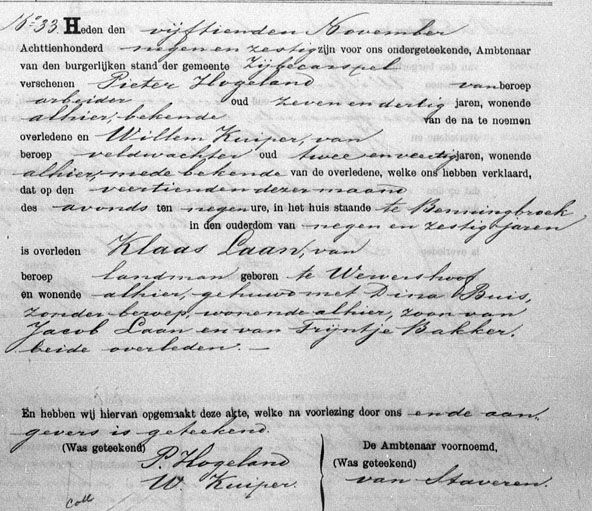 No 33. Heden den vijftienden November
Achttienhonderd negen en zestig zijn voor ons ondergeteekende, Ambtenaar
van den burgerlijken stand der gemeente Zijbecarspel
verschenen Pieter Hogeland van beroep
arbeider oud zeven en dertig jaren, wonende
alhier, bekende van de na te noemen
overledene en Willem Kuiper, van
beroep veldwachter oud twee en veertig jaren, wonende
alhier, mede bekende van de overledene, welke ons hebben verklaard,
dat op den veertienden dezer maand
des avonds ten negen ure, in het huis staande te Benningbroek
in den ouderdom van negen en zestig jaren
is overleden Klaas Laan, van
beroep landman geboren te Wewershoof
en wonende alhier, gehuwd met Dina Buis,
zonder beroep, wonende alhier, zoon van
Jacob Laan en van Trijntje Bakker,
beide overleden. —
En hebben wij hiervan opgemaakt deze akte, welke na voorlezing door ons en de aan-
gevers is geteekend.
(Was geteekend) De Ambtenaar voornoemd,
P. Hogeland (Was geteekend)
W. Kuiper. van Staveren.
Coll